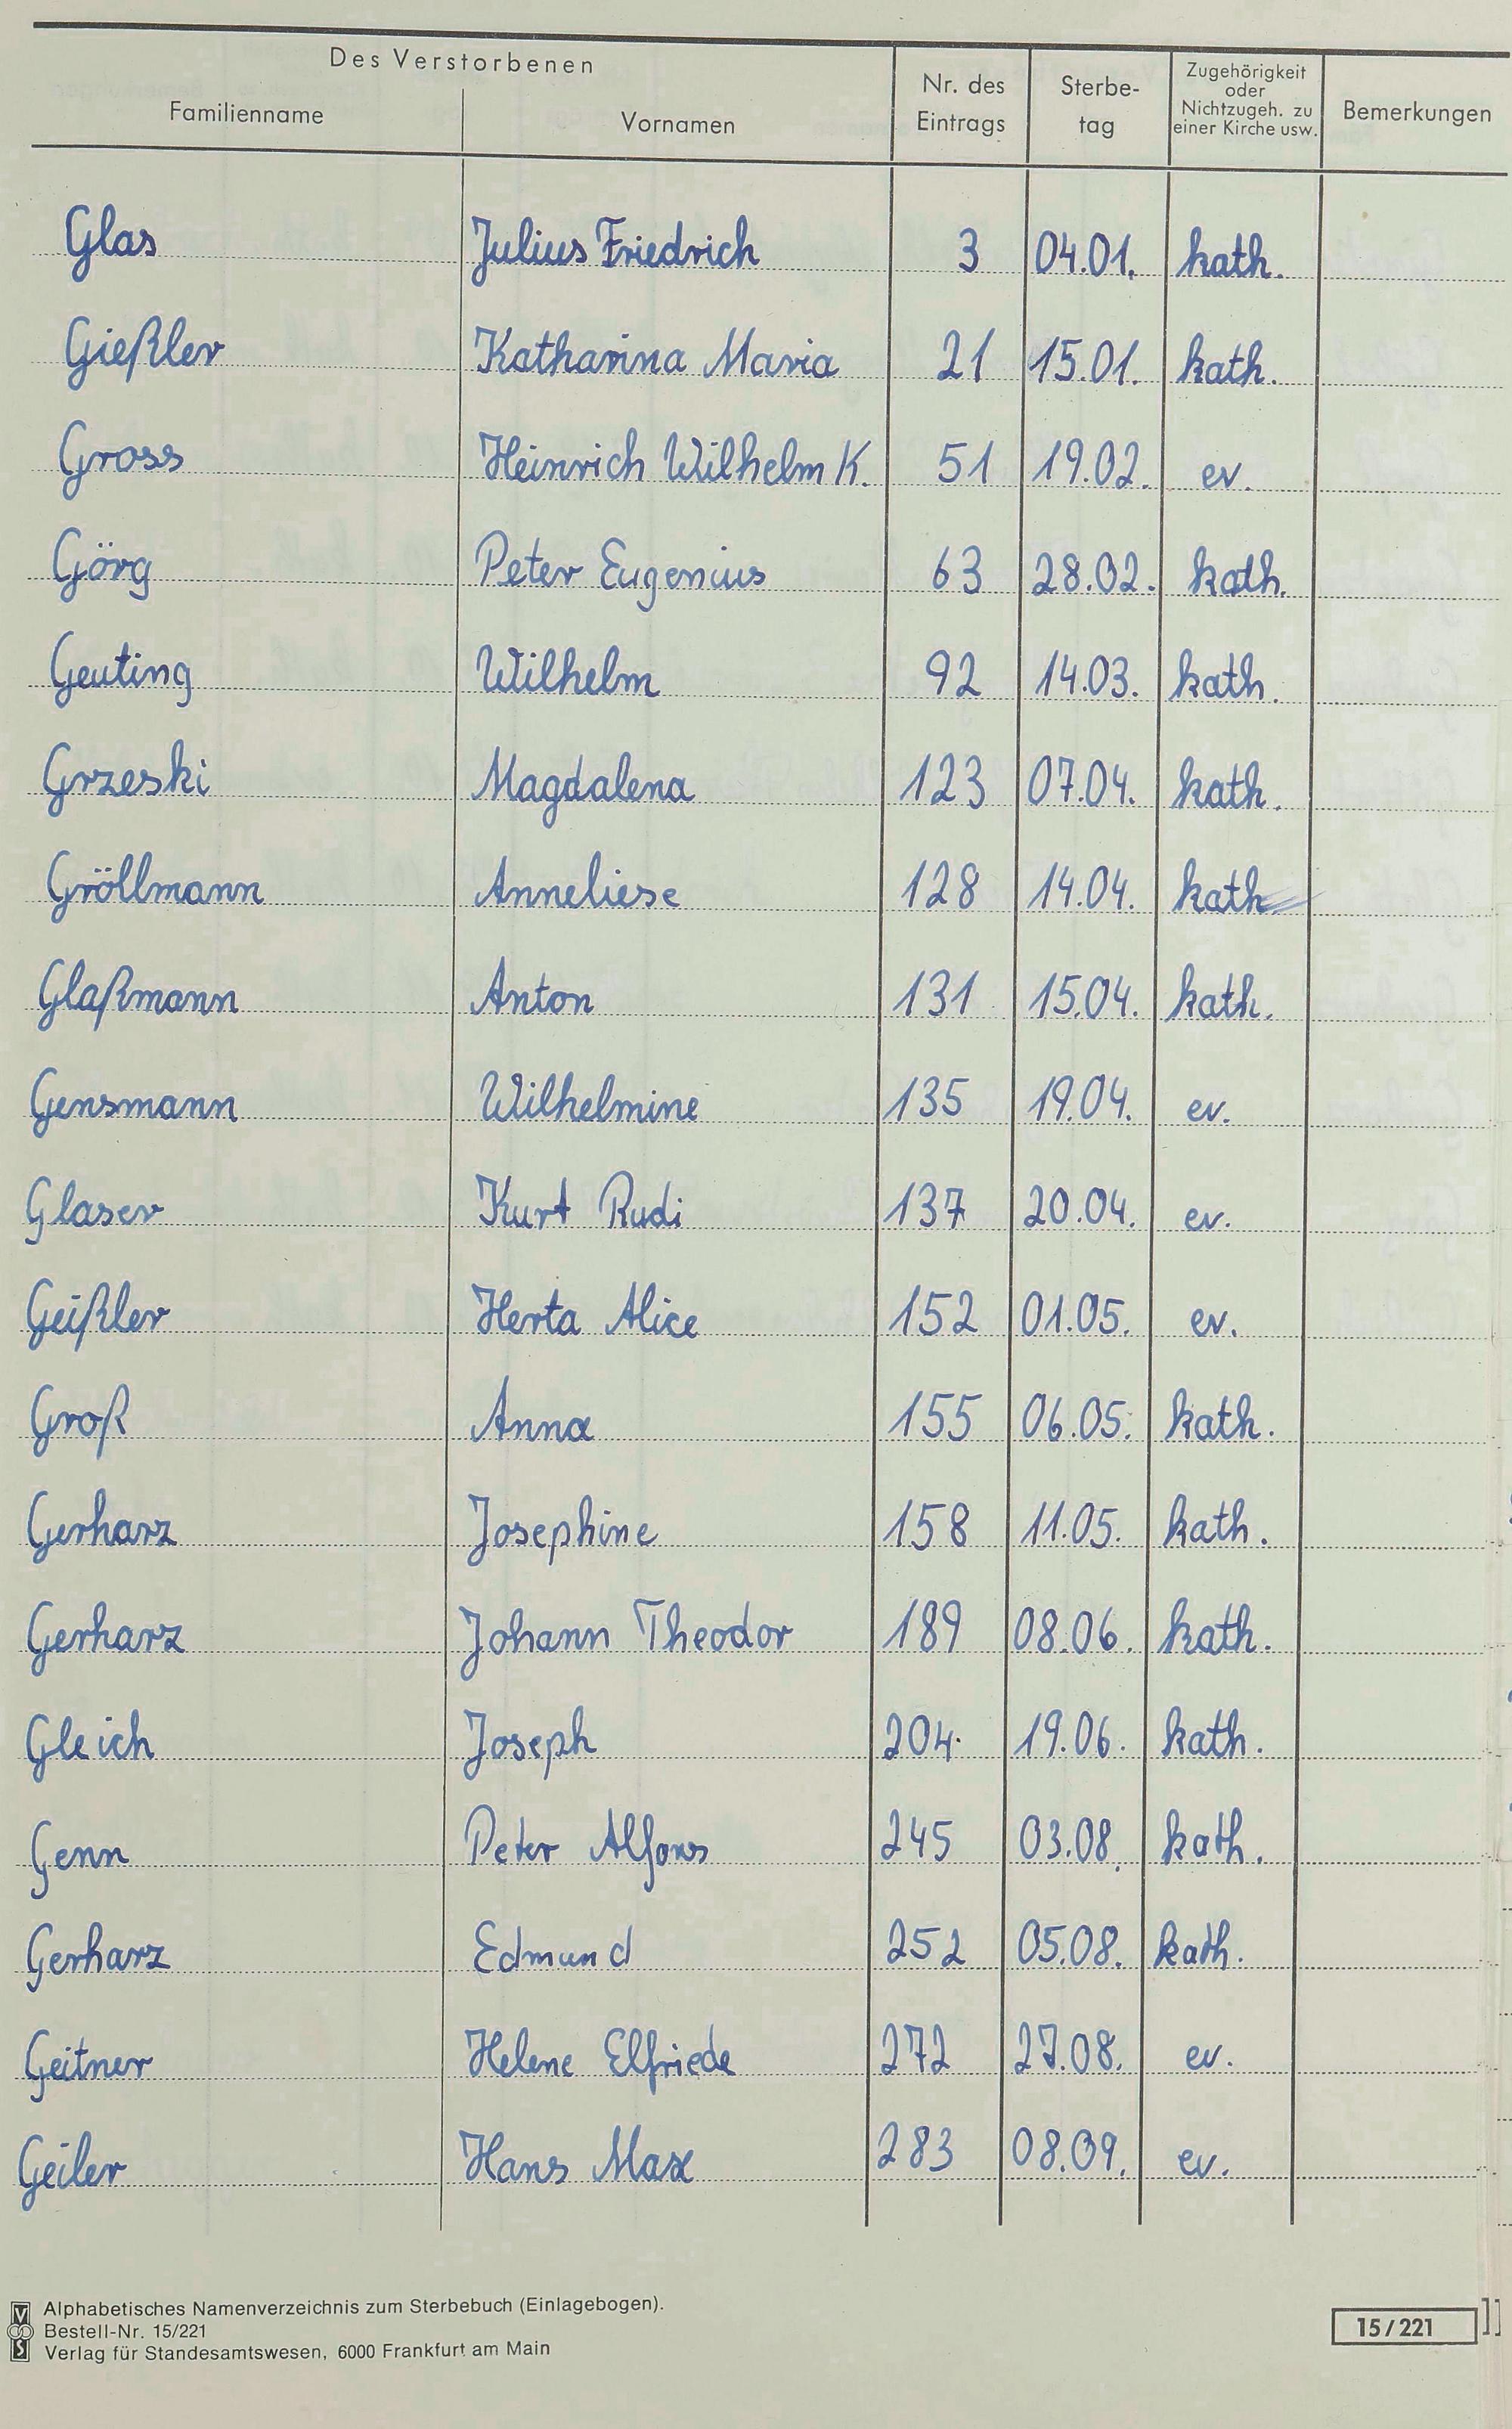 Des Verstorbenen
Familienname Vornamen Nr. des Eintrags Sterbe-tag Zugehörigkeit oder Nichtzugeh. zu einer Kirche usw. Bemerkungen
Glas Julius Friedrich 3 04.01. kath.
Gießler Katharina Maria 21 15.01. kath.
Gross Heinrich Wilhelm K. 51 19.02. ev.
Görg Peter Eugenius 63 28.02. kath.
Geuting Wilhelm 92 14.03. kath.
Grzeski Magdalena 123 07.04. kath.
Gröllmann Anneliese 128 14.04. kath
Glaßmann Anton 131 15.04. kath.
Gensmann Wilhelmine 135 19.04. ev.
Glaser Kurt Rudi 137 20.04. ev.
Geißler Herta Alice 152 01.05. ev.
Groß Anna 155 06.05. kath.
Gerharz Josephine 158 11.05. kath.
Gerharz Johann Theodor 189 08.06. kath.
Gleich Joseph 204. 19.06. kath.
Genn Peter Alfons 245 03.08. kath.
Gerharz Edmund 252 05.08. kath.
Geitner Helene Elfriede 272 27.08. ev.
Geiler Hans Max 283 08.09. ev.
Alphabetisches Namenverzeichnis zum Sterbebuch (Einlagebogen).
Bestell-Nr. 15/221
Verlag für Standesamtswesen, 6000 Frankfurt am Main
15/221